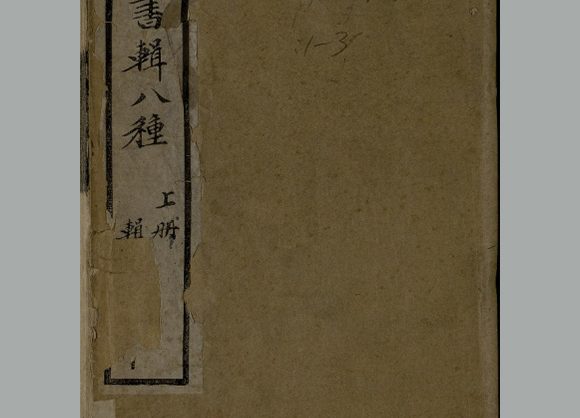 書輯八種
上册
輯
1-3